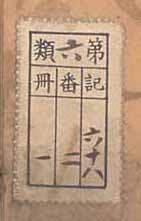 第六類
記六十八
番二
冊一